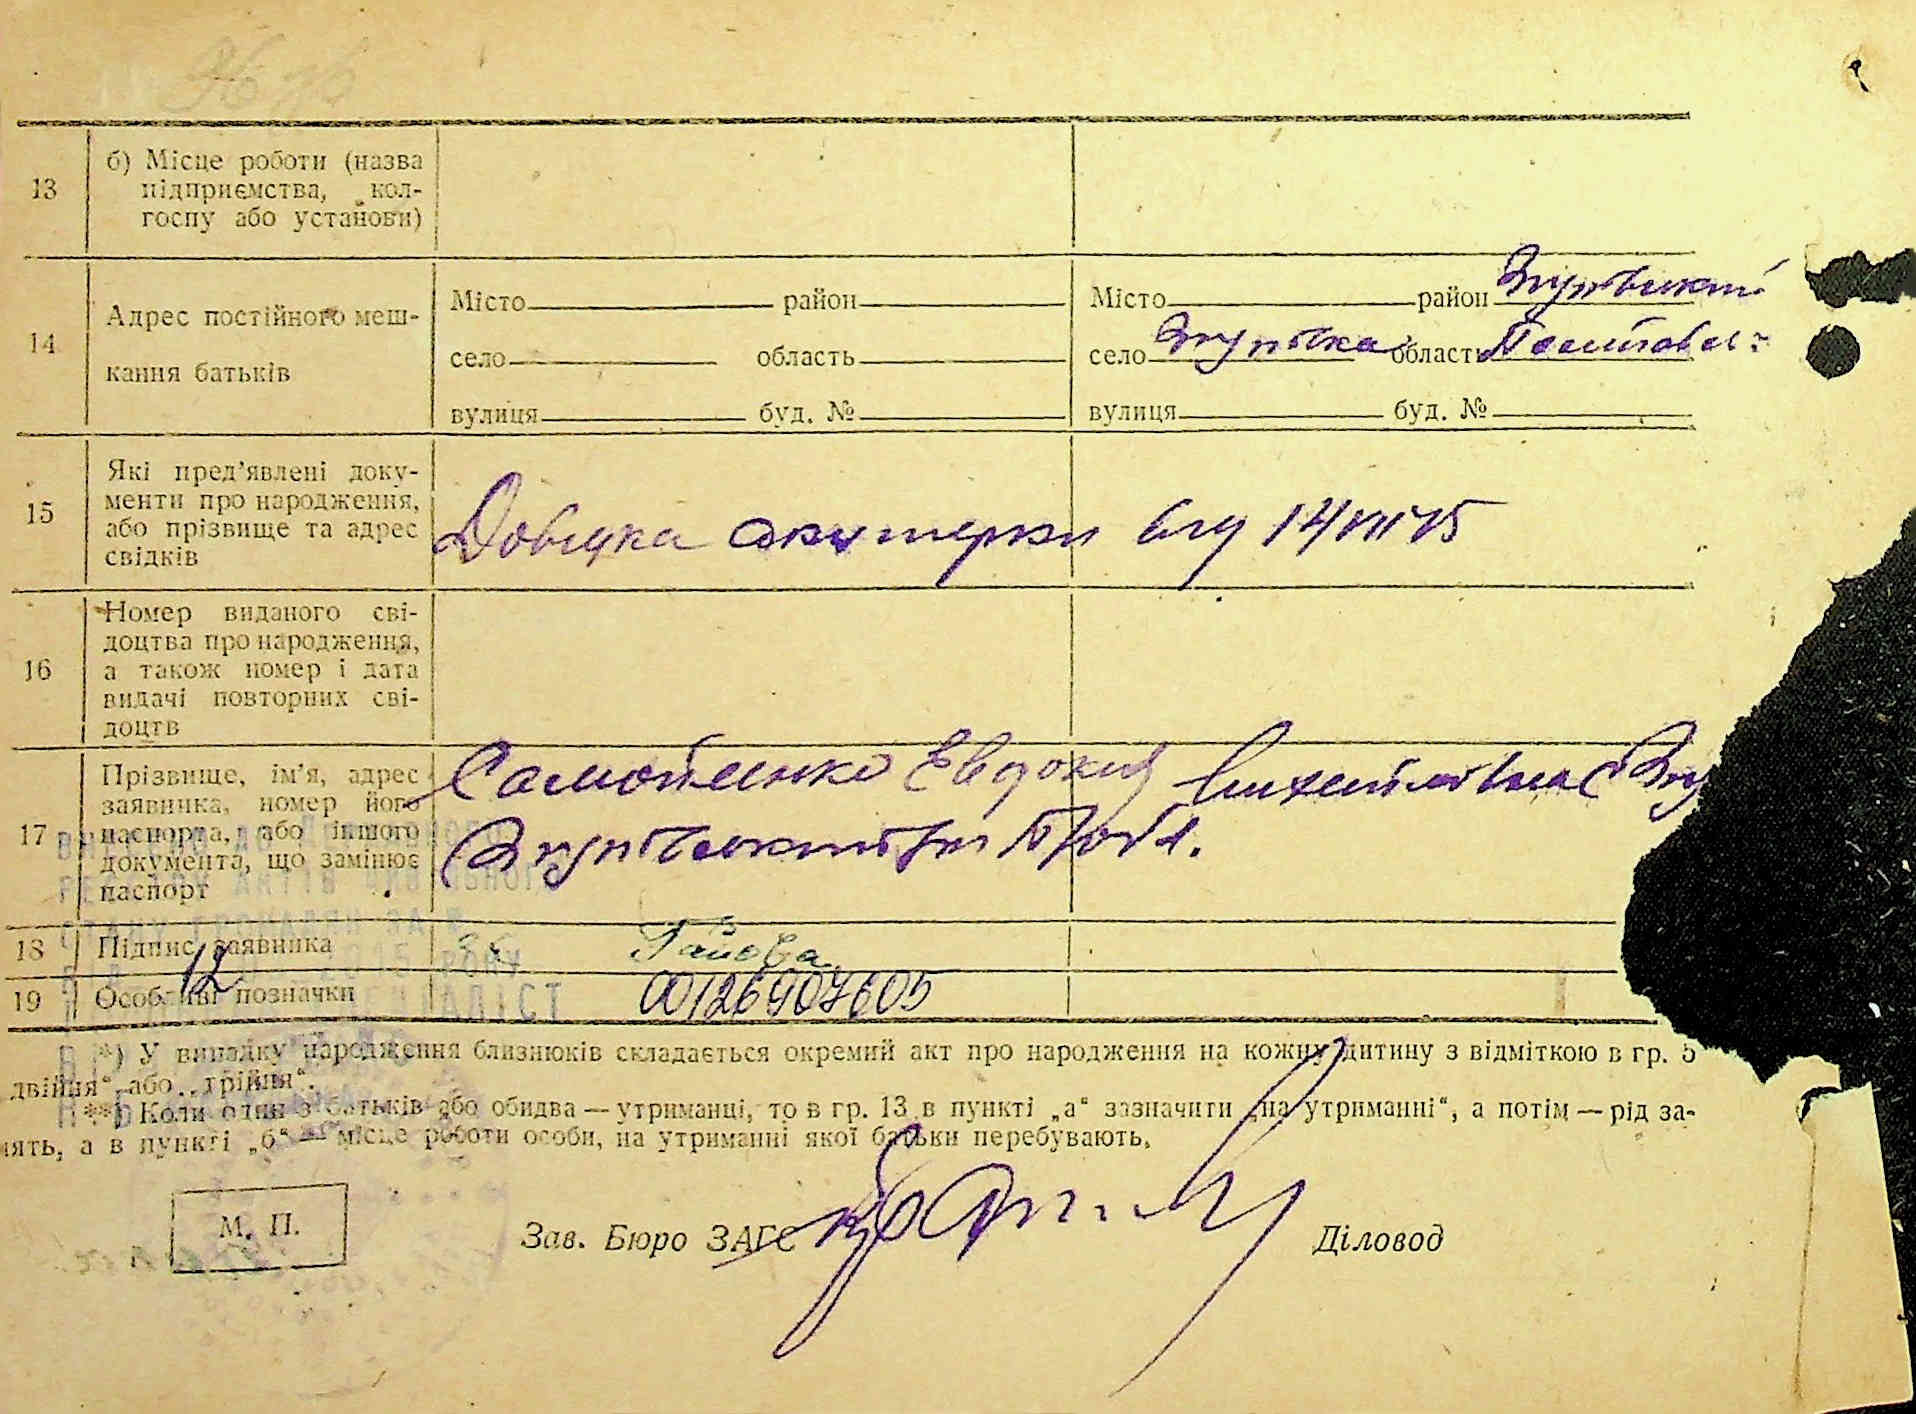 13
б) Місце роботи (назва
підприємства, кол-
госпу або установи)
14
Адрес постійного меш-
кання батьків
Місто район
село область
вулиця буд. №
Місто район Згурівський
село Згурівка область Полтавськ
вулиця буд. №
15
Які пред'явлені доку-
менти про народження,
або прізвище та адрес
свідків
Довідка окушерки від 14/VIII 45
16
Номер виданого сві-
доцтва про народження,
а також номер і дата
видачі повторних сві-
доцтв
17
Прізвище, ім'я, адрес
заявника, номер його
паспорта, або іншого
документа, що замінює
паспорт
Самойленко Евдокия Михайловна с Згу
Згурівський
18
Підпис заявника
19
Особливі позначки
12
00126907605
*) У випадку народження близнюків складається окремий акт про народження на кожну дитину з відміткою в гр. 5
двійня“ або „трійня“.
**) Коли один з батьків або обидва — утриманці, то в гр. 13 в пункті „а“ зазначити „на утриманні“, а потім — рід за-
нять, а в пункті „б“ — місце роботи особи, на утриманні якої батьки перебувають.
М. П.
Зав. Бюро ЗАГС
Діловод